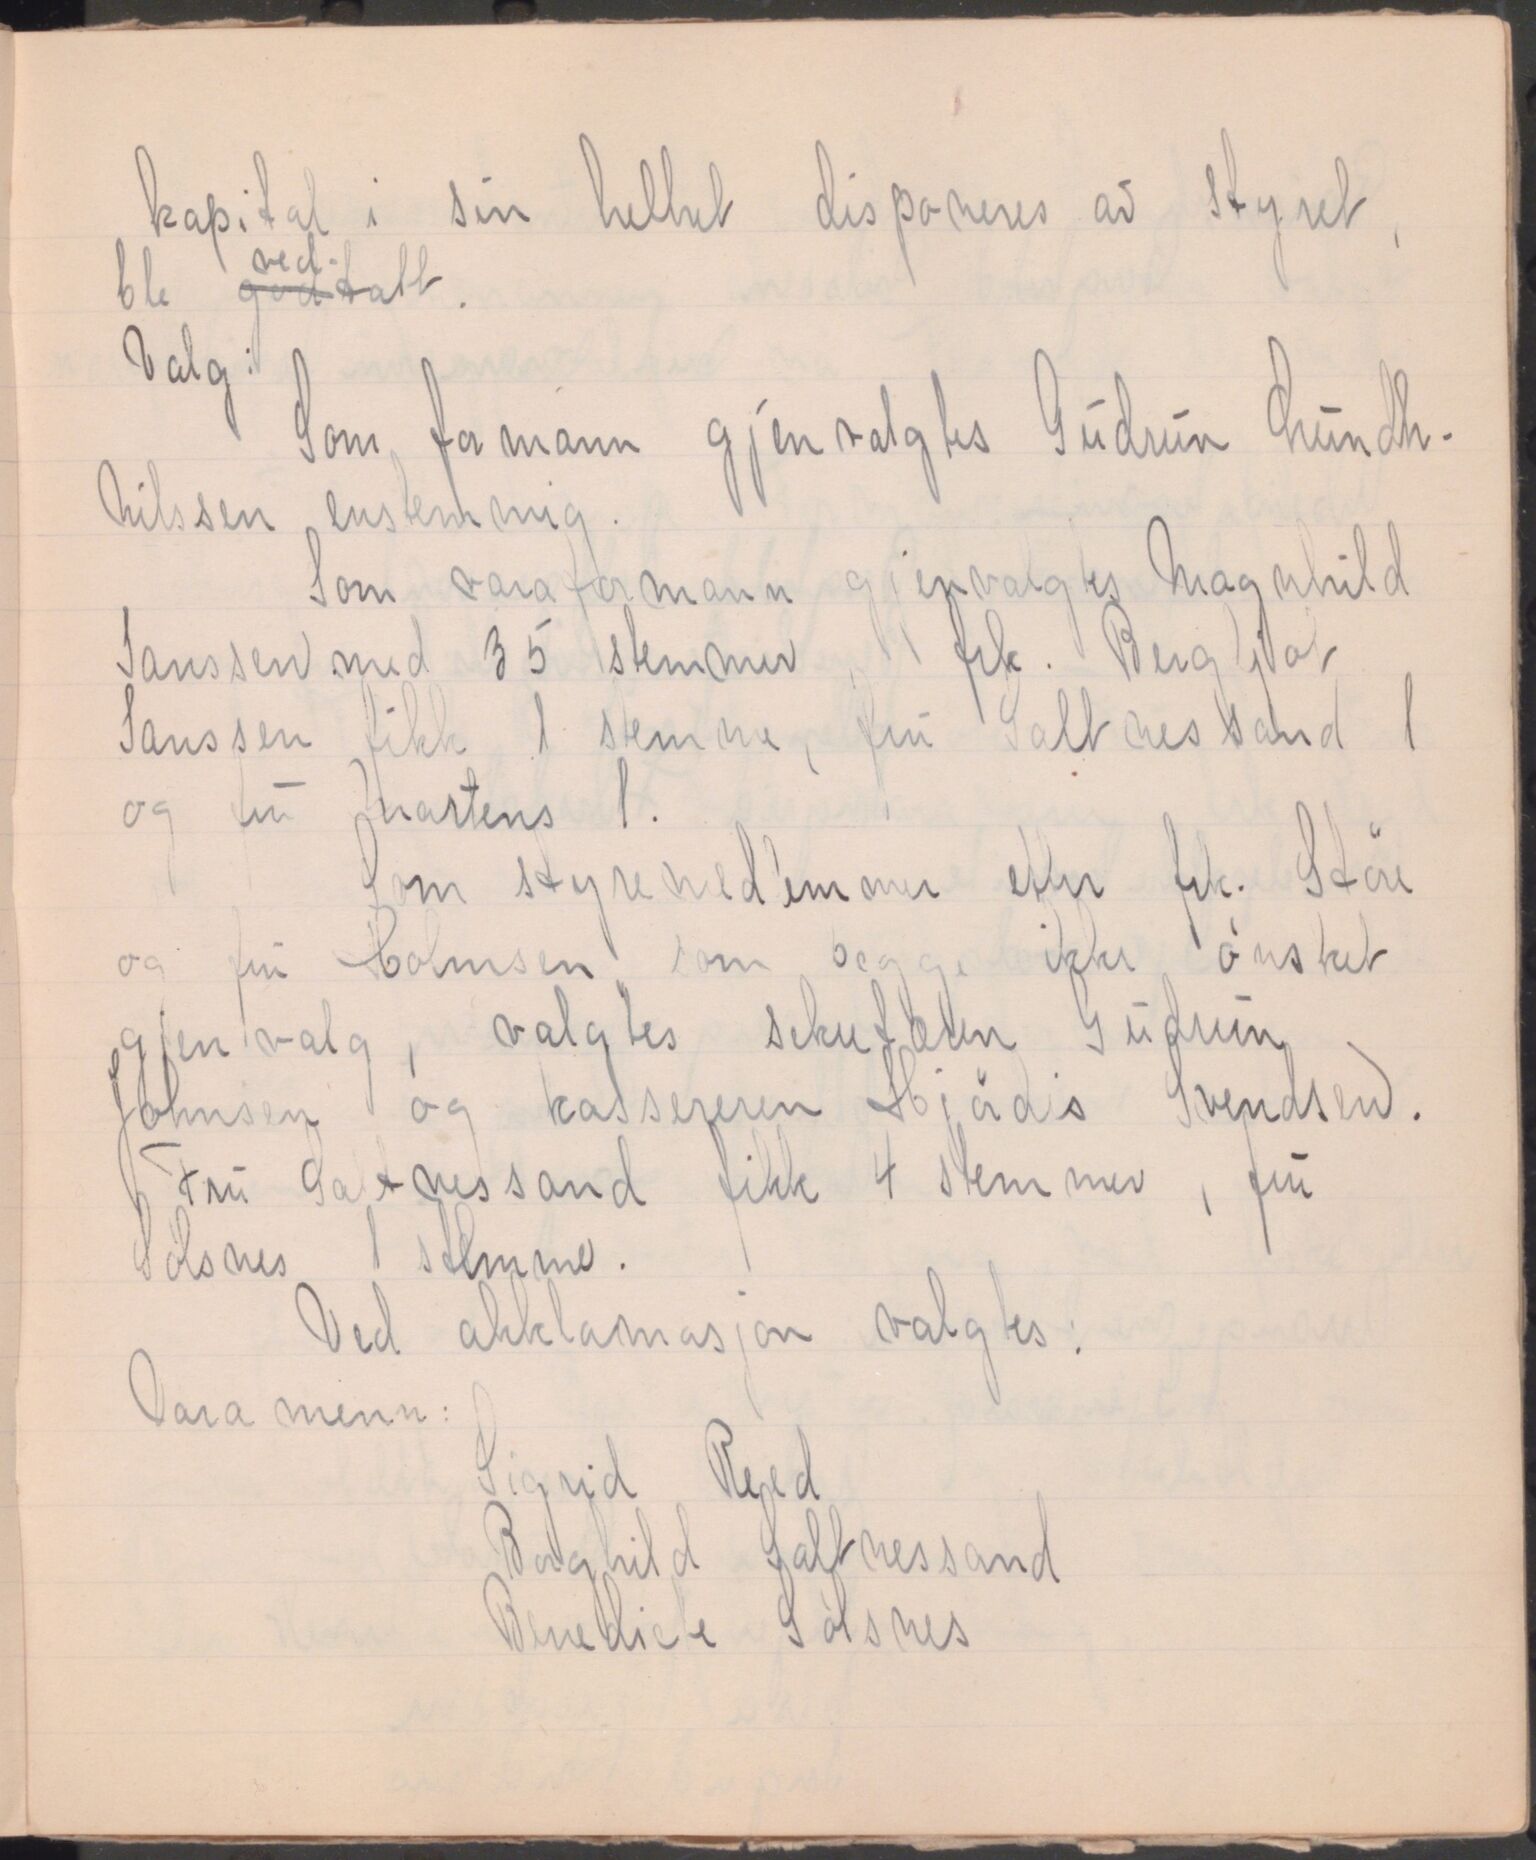 kapital i sin helhet disponeres av styret,
ble ved-tatt.
Valg:
Som formann gjenvalgtes Gudrun Lundh-
Nilssen enstemmig.
Som varaformann gjenvalgtes Magnhild
Janssen med 35 stemmer, frk. Bergljot
Janssen fikk 1 stemme, fru Saltnessand 1
og fru Martens 1.
Som styremedlemmer etter frk. Støre
og fru Holmsen, som begge ikke ønsket
gjenvalg, valgtes sekretæren Gudrun
Johnsen og kassereren Hjørdis Svendsen.
Fru Saltnessand fikk 4 stemmer, fru
Sølsnes 1 stemme.
Ved akklamasjon valgtes:
Varamenn:
Sigrid
Borghild Saltnessand
Benedicte Sølsnes